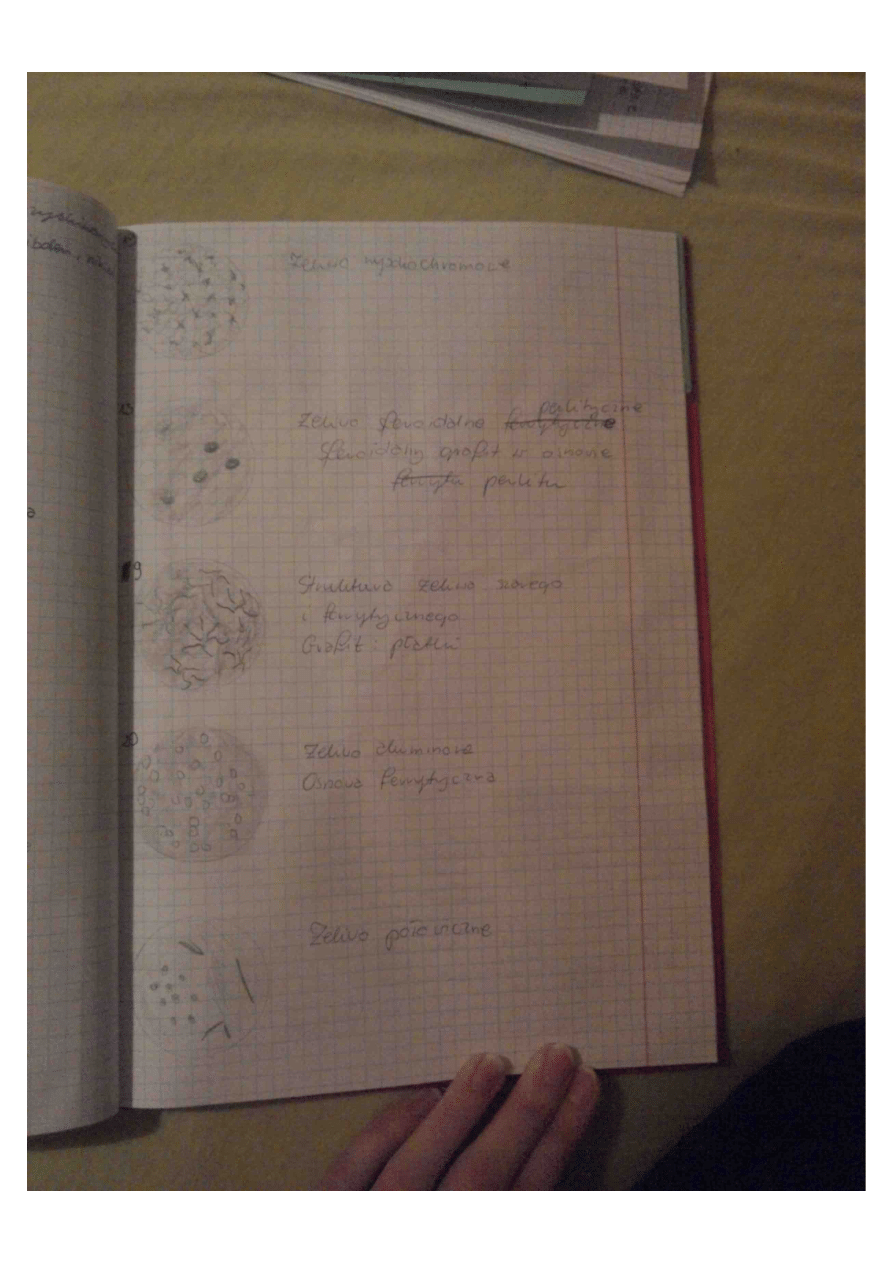 Żeliwo wysokochromowe
13
Żeliwo sferoidalne ferrytyczne perlityczne
sferoidalny grafit w osnowie
ferrytu perlitu
19
Struktura żeliwa szarego
i ferrytycznego
Grafit: płatki
20
Żeliwo aluminowe
Osnowa ferrytyczna
Żeliwo połowiczne